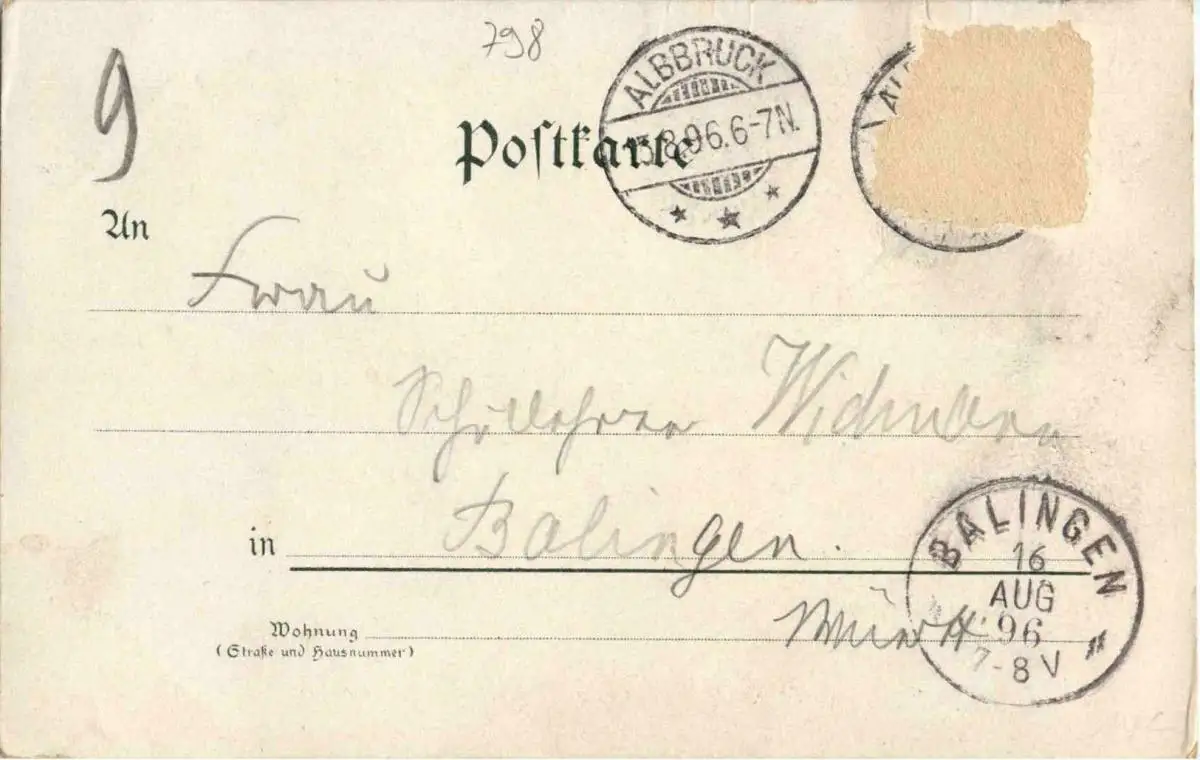 798
9
Postkarte
ALBBRUCK
15.8.96.6-7N.
AL
An
Frau
Schullehrer Widmann
in Balingen.
Württ.
Wohnung
(Straße und Hausnummer)
BALINGEN
16
AUG
96
7-8 V